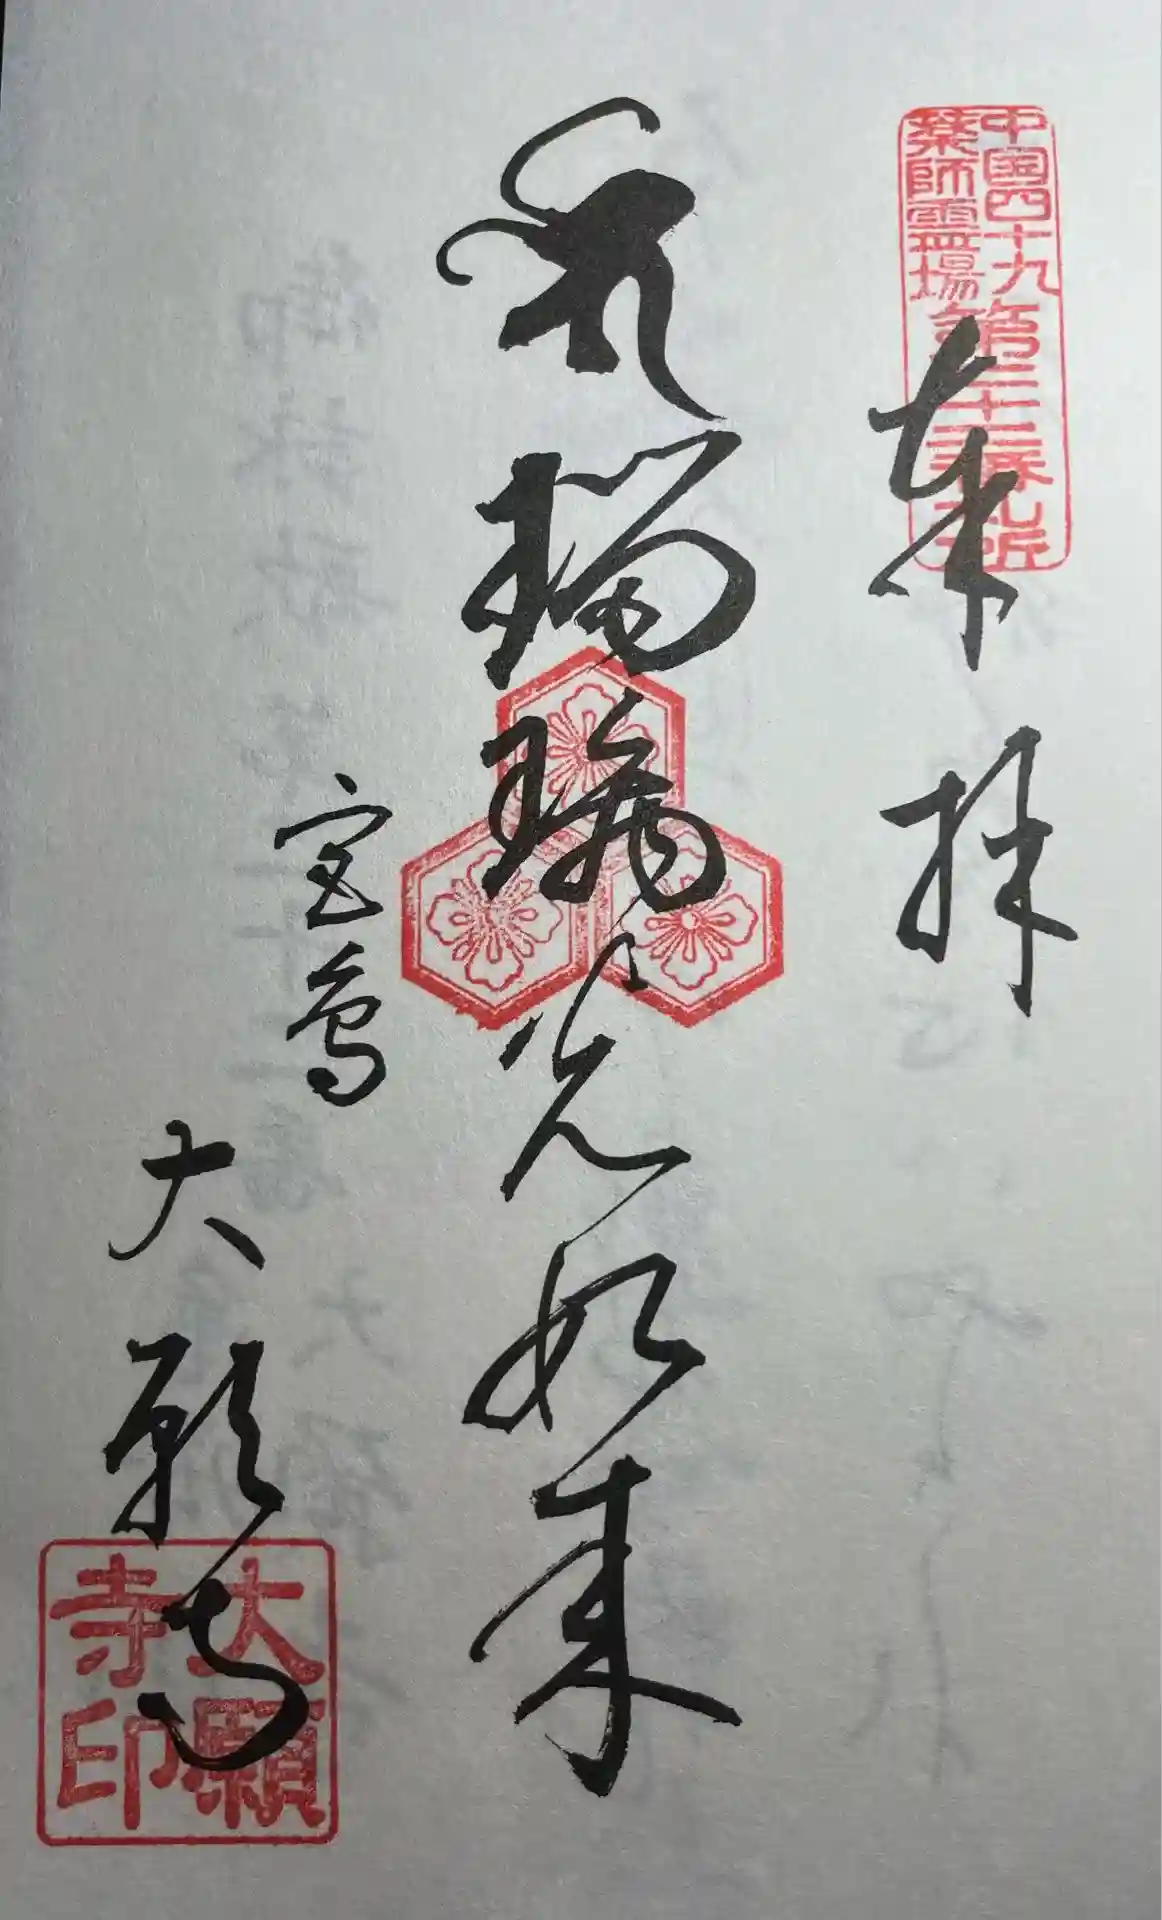 中国四十九
薬師霊場
第二十三番札所
奉拝
瑠璃光如来
宮島
大願寺
大願
寺印